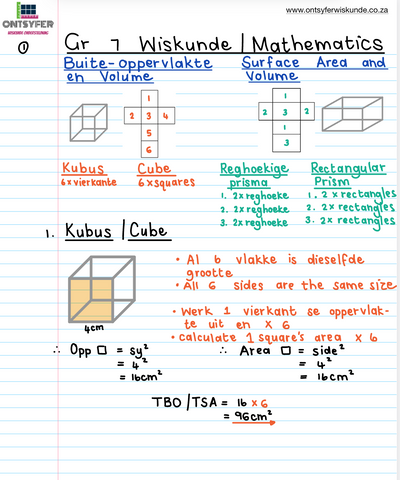 ONTSYFER
WISKUNDE ONDERSTEUNING
www.ontsyferwiskunde.co.za
1
Gr 7 Wiskunde / Mathematics
Buite-oppervlakte en Volume
Surface Area and Volume
1
2 3 4
5
6
1
2 3 2
1
3
Kubus
6x vierkante
Cube
6 x squares
Reghoekige prisma
1. 2x reghoeke
2. 2x reghoeke
3. 2x reghoeke
Rectangular Prism
1. 2 x rectangles
2. 2 x rectangles
3. 2 x rectangles
1. Kubus / Cube
4cm
• Al 6 vlakke is dieselfde grootte
• All 6 sides are the same size
• Werk 1 vierkant se oppervlak-
te uit en x 6
• calculate 1 square's area x 6
∴ Opp □ = sy²
= 4²
= 16cm²
∴ Area □ = side²
= 4²
= 16cm²
TBO / TSA = 16 x 6
= 96cm²